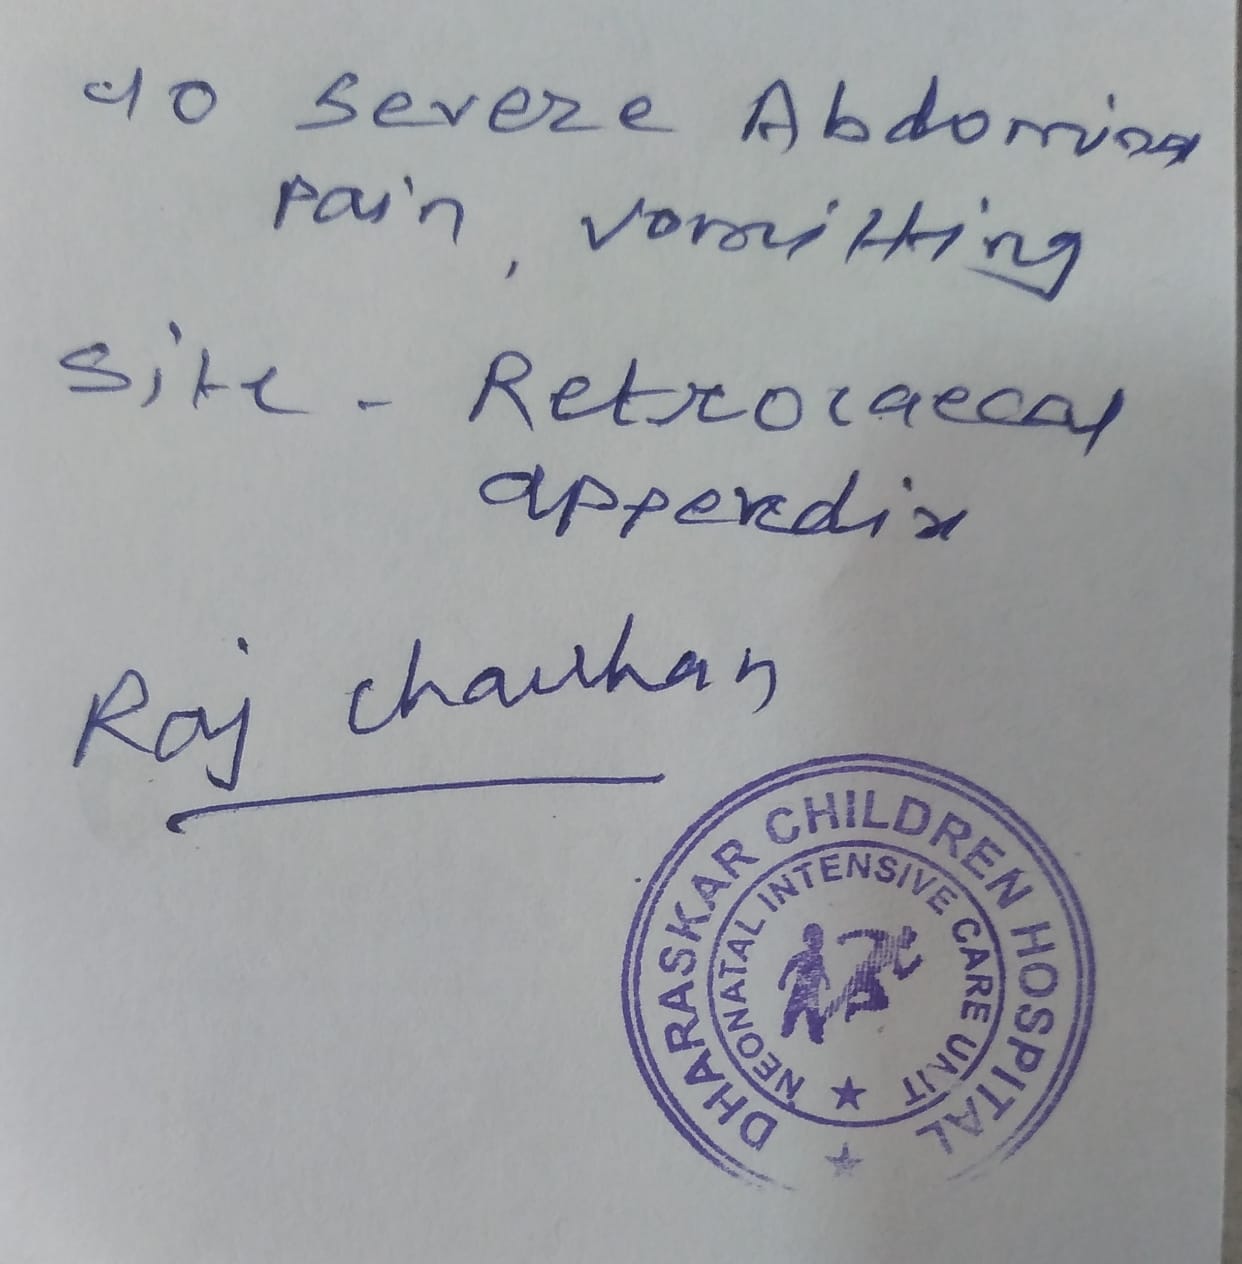 c/o Severe Abdominal
pain, vomitting
Site - Retrocaecal
appendix
Raj Chauhan
DHARASKAR CHILDREN HOSPITAL
NEONATAL INTENSIVE CARE UNIT